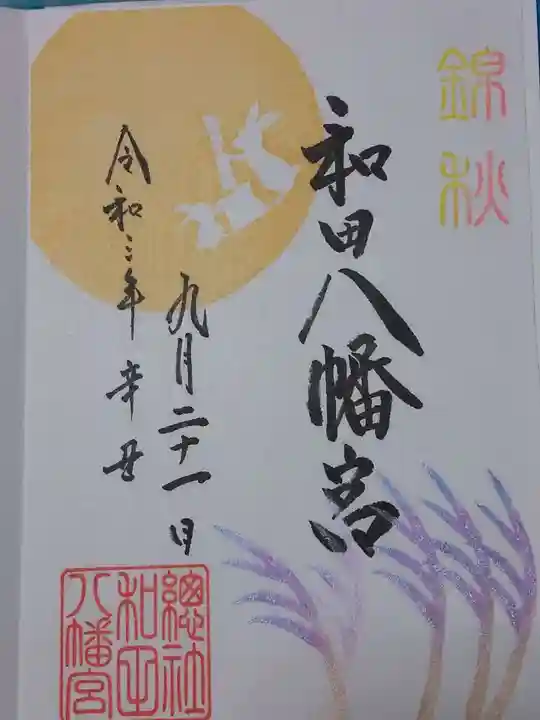 錦秋
和田八幡宮
九月二十一日
令和三年 辛丑
總社
和田
八幡宮